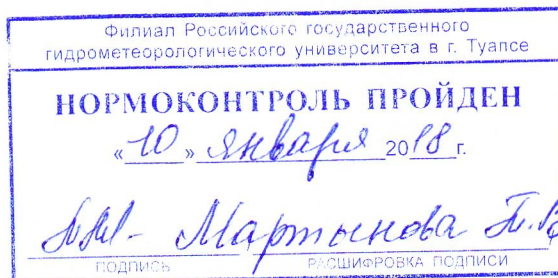 Филиал Российского государственного
гидрометеорологического университета в г. Туапсе
НОРМОКОНТРОЛЬ ПРОЙДЕН
«10» января 2018 г.
Мартынова Т.В.
ПОДПИСЬ РАСШИФРОВКА ПОДПИСИ